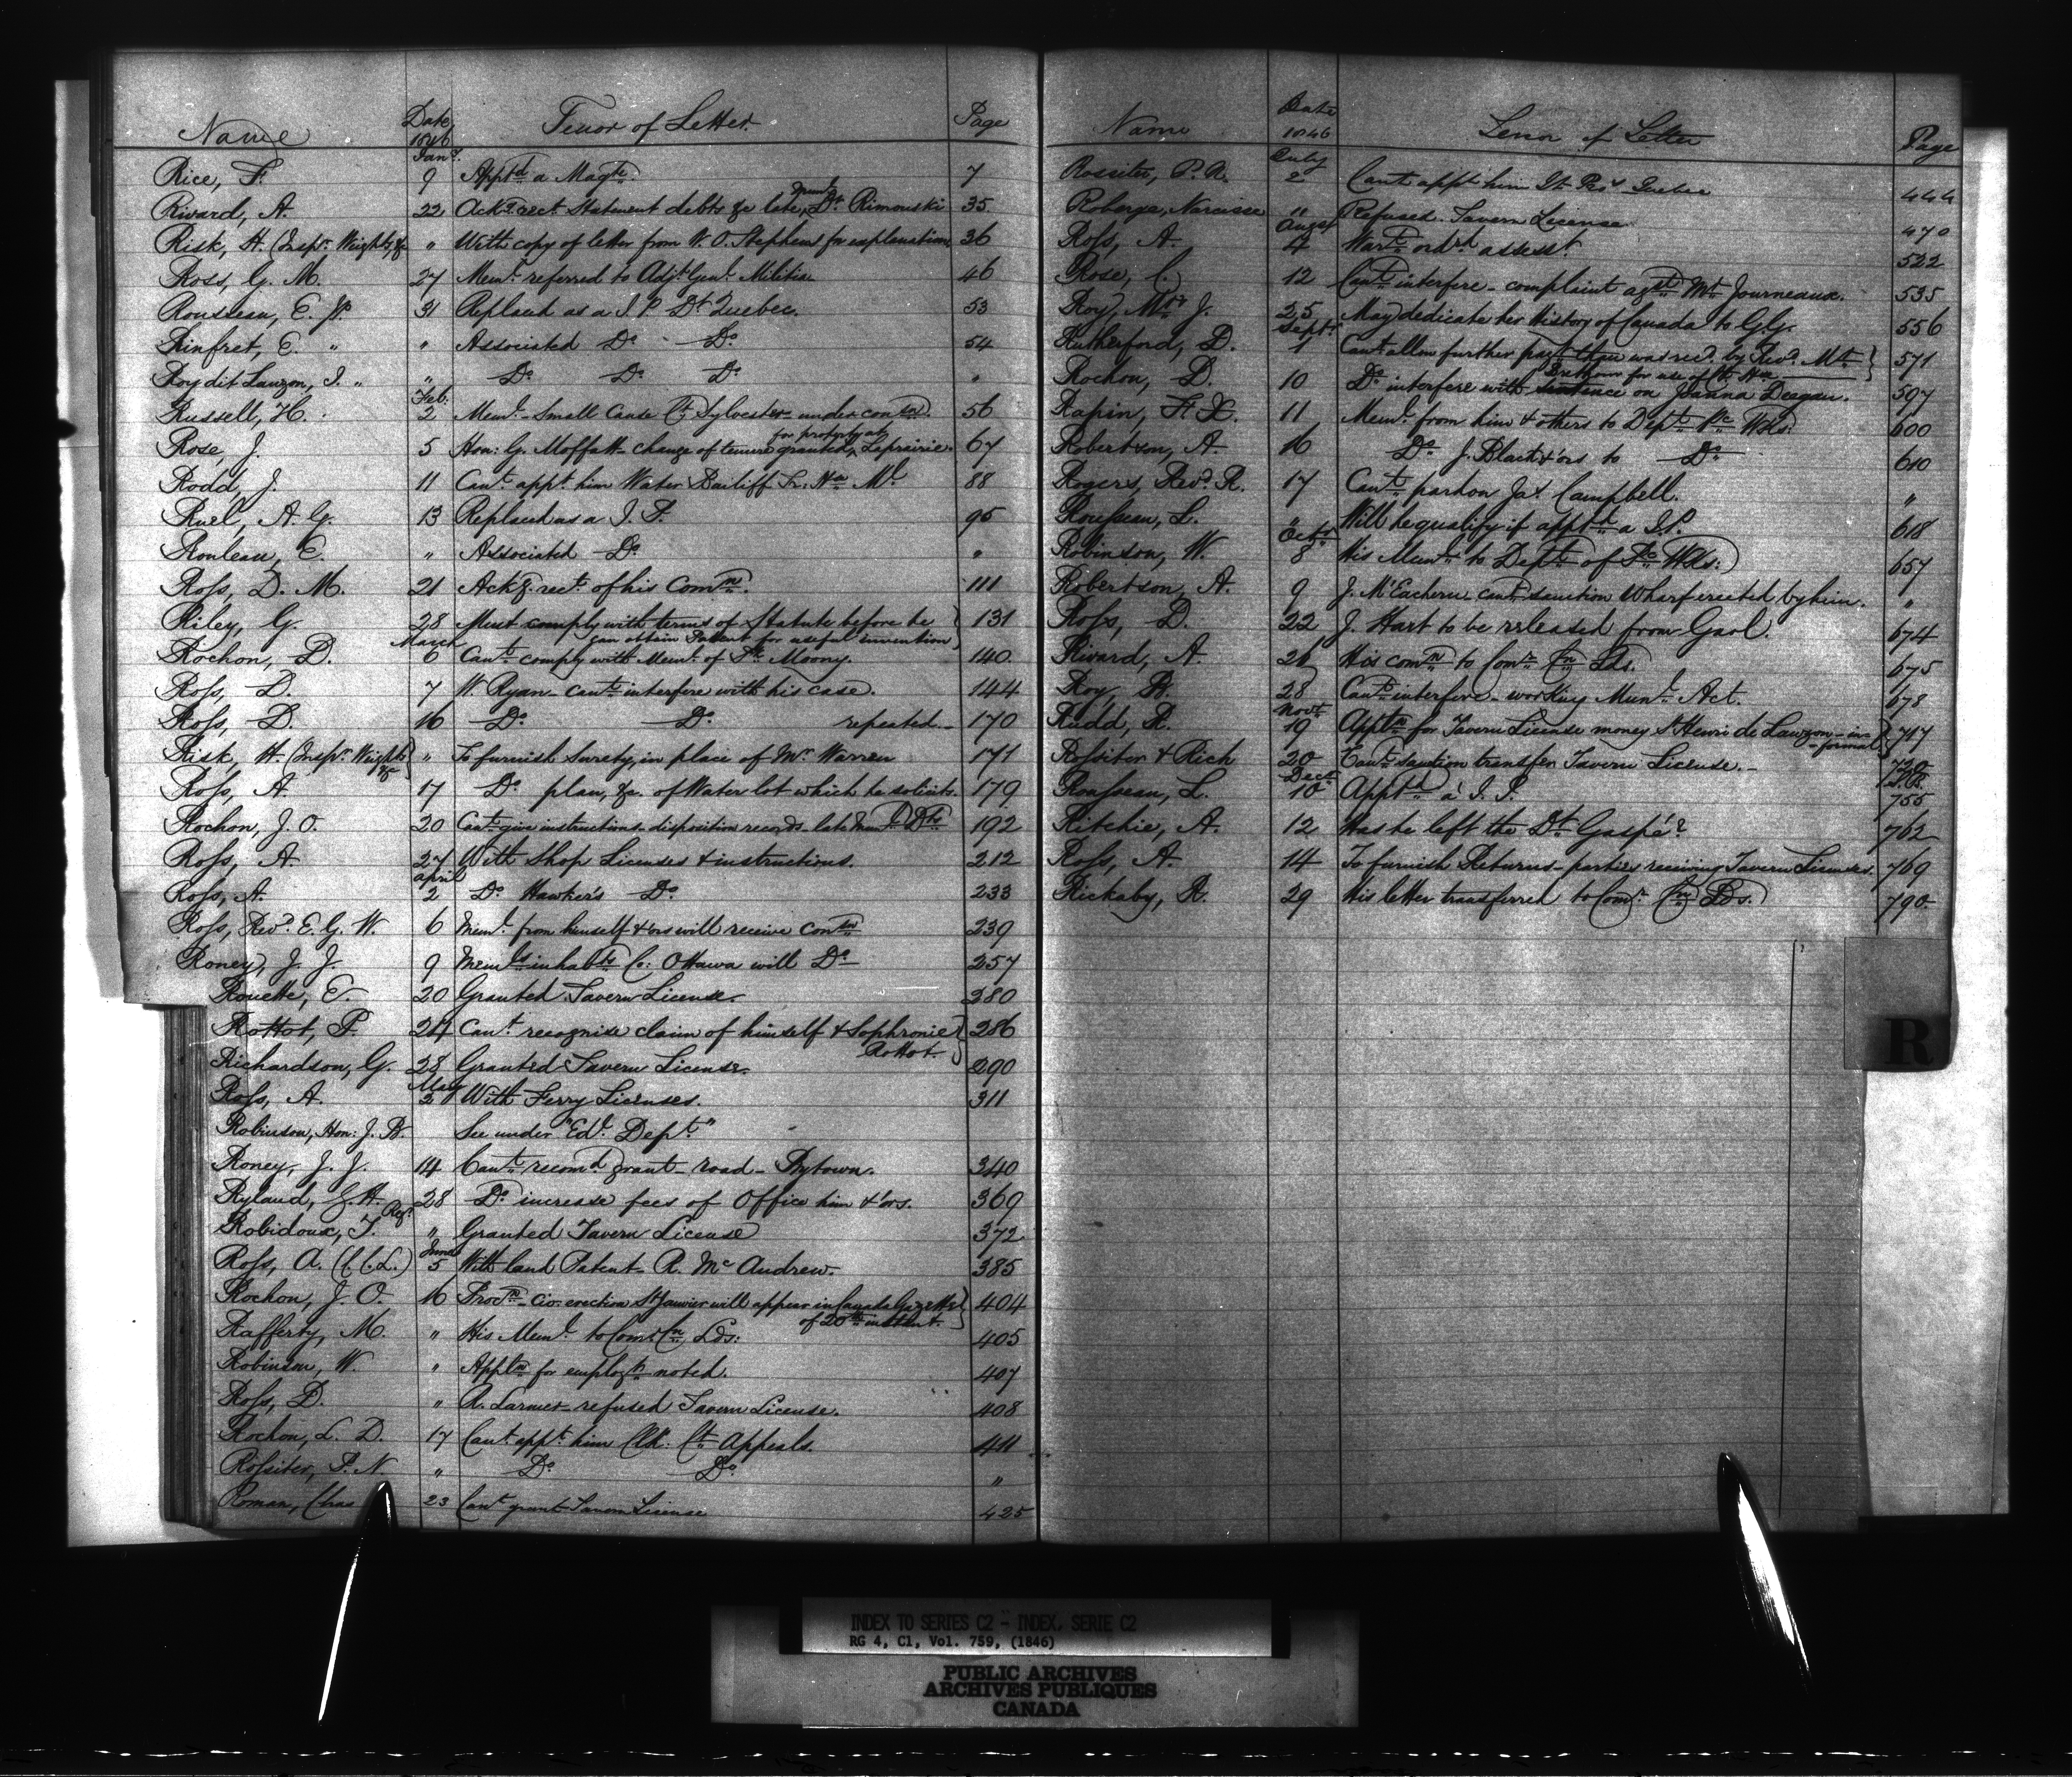 Name Date 1846 Tenor of Letter Page
Jany.
Rice, F. 9 Apptd a Magte. 7
Rivard, A. 22 Ackg. rect. Statement debts &c late Munl. Dt. Rimouski 35
Risk, H. (Inspr. Weights, &c " With copy of letter from W. O. Stephens for explanation 36
Ross, G. M. 27 Meml. referred to Adjt. Genl. Militia 46
Rousseau, E. JP. 31 Replaced as a J. P. Dt. Quebec. 53
Rinfret, E. " " Associated Do. Do. 54
Roy dit Lauzon, I. " " Do Do Do "
Feb.
Russell, H. 2 Meml. Small Cause Ct. Sylvester under conson. 56
Rose, J. 5 Hon: G. Moffatt - change of tenure granted, for property at Laprairie. 67
Rodd, J. 11 Cant. appt. him Water Bailiff Tr. Hse Ml. 88
Ruel, A. G. 13 Replaced as a J. P. 95
Rouleau, E. " Associated Do. "
Ross, D. M. 21 Ackg. rect. of his Comn. 111
Riley, G. 28 Must comply with terms of Statute before he 131
can obtain Patent for useful invention
March
Rochon, D. 6 Cant. comply with Meml. of Pk. Moony. 140
Ross, D. 7 W. Ryan - cant. interfere with his case. 144
Ross, D. 16 Do. Do. repeated - 170
Risk, H. (Inspr. Weights &c " To furnish Surety, in place of Mr. Warren 171
Ross, A. 17 Do. plan, &c. of Water lot which he solicits. 179
Rochon, J. O. 20 Cant. give instructions - disposition records - late Munl. Dts 192
Ross, A. 27 With Shop Licenses & instructions. 212
April
Ross, A. 2 Do. Hawker's Do. 233
Ross, Revd. E. G. W. 6 Meml. from himself & ors will receive conson 239
Roney, J. J. 9 Memls inhabts Co: Ottawa will Do 257
Rouette, E. 20 Granted Tavern License. 280
Rottot, P. 24 Cant. recognise claim of himself & Sophronie 286
Rottot.
Richardson, G. 28 Granted Tavern License. 290
May
Ross, A. 2 With Ferry Licenses. 311
Robinson, Hon: J. B. See under "Ed. Dept."
Roney, J. J. 14 Cant. recomd grant - road - Bytown. 340
Ryland, G. H. Regr. 28 Do. increase fees of Office him & ors. 369
Robidoux, T. " Granted Tavern License 372
June
Ross, A. (C. C. L.) 5 With land Patent - R. Mc Andrew. 385
Rochon, J. O. 16 Procn. - civ. erection St Janvier will appear in Canada Gazette 404
of 20th instant.
Rafferty, M. " His Meml. to Comr. Cn. Lds: 405
Robinson, W. " Appln for employt. noted. 407
Ross, D. " R. Larmer - refused Tavern License. 408
Rochon, L. D. 17 Cant. appt. him Clk: Ct. Appeals. 411
Rossiter, P. N. " Do. Do. "
Roman, Chas 23 Cant. grant Tavern License 425
Name Date 1846 Tenor of Letter Page
July
Rossiter, P. N. 2 Cant. appt. him Quebec 444
Roberge, Narcisse " Refused Tavern License 470
Augst
Ross, A. 4 Wart. ordrd assesst. 522
Rose, C. 12 Cant. interfere - complaint agst Mr. Journeaux. 535
Roy, Mrs. J. 25 May dedicate her History of Canada to GG. 556
Septr
Rutherford, D. 1 Cant. allow further part than was recd. by Revd. Mr. 571
Brethour for use of Ch Hse
Rochon, D. 10 Do. interfere with sentence on Joanna Deegan. 597
Rapin, F. X. 11 Meml. from him & others to Dept. Pc Wks: 600
Robertson, A. 16 Do. J. Black & ors to Do. 610
Rogers, Revd. R. 17 Cant. pardon Jas. Campbell. "
Rousseau, L. " Will he qualify if apptd a J.P. 618
Octr
Robinson, W. 8 His Meml. to Dept. of Pc Wks: 657
Robertson, A. 9 J. McEachern cant. sanction Wharf erected by him. "
Ross, D. 22 J. Hart to be released from Gaol. 674
Rivard, A. 26 His comn to Comr. Cn. Lds. 675
Roy, B. 28 Cant. interfere - working Munl. Act. 678
Novr
Rudd, R. 19 Appln for Tavern License money St Henri de Lauzon - in- 717
- formal
Rossiter & Rich 20 Cant. sanction transfer Tavern License. - 720
Decr
Rousseau, L. 10 Apptd a J. P. 755
Ritchie, A. 12 Has he left the Dt. Gaspé? 762
Ross, A. 14 To furnish Returns - parties receiving Tavern Licenses. 769
Rickaby, R. 29 His letter transferred to Comr. Cn. Lds. 790
R
INDEX TO SERIES C2 - INDEX, SERIE C2
RG 4, C1, Vol. 759, (1846)
PUBLIC ARCHIVES
ARCHIVES PUBLIQUES
CANADA